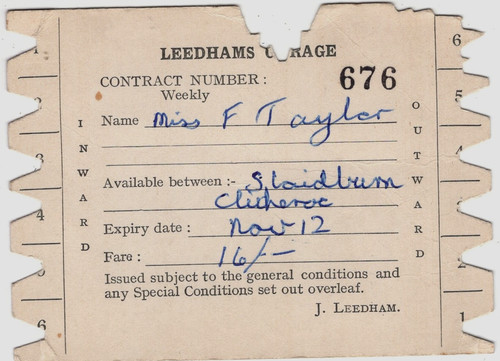 LEEDHAMS G RAGE
CONTRACT NUMBER: 676
Weekly
Name Miss F Taylor
Available between :- Slaidburn
Clitheroe
Expiry date : Nov 12
Fare : 16/-
Issued subject to the general conditions and
any Special Conditions set out overleaf.
J. LEEDHAM.
INWARD
3
4
6
OUTWARD
6
5
4
3
2
1